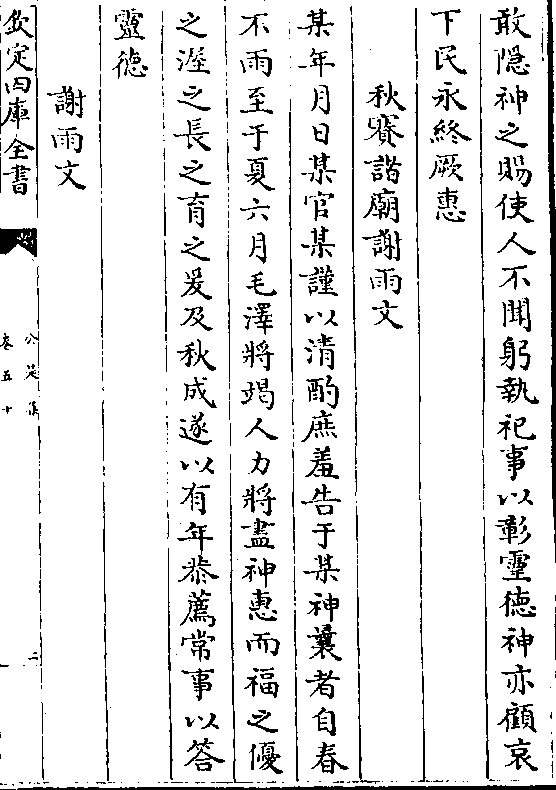 敢隠神之賜使人不聞躬執祀事以彰靈徳神亦顧哀
下民永終厥惠
秋賽諸廟謝雨文
某年月日某官某謹以清酌庶羞告于某神曩者自春
不雨至于夏六月毛澤將竭人力將盡神惠而福之優
之渥之長之育之爰及秋成遂以有年恭薦常事以答
靈徳
謝雨文
欽定四庫全書
公是集
卷五十
二